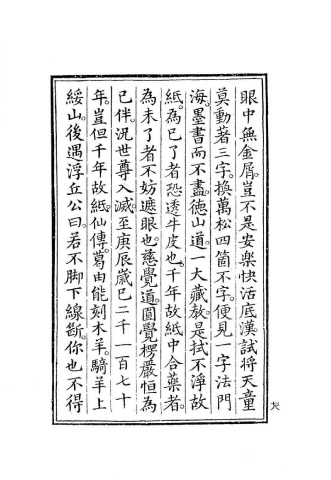 眼中無金屑。豈不是安樂快活底漢試將天童
莫動著三字。換萬松四箇不字。便見一字法門
海。墨書而不盡。德山道。一大藏教。是拭不淨故
紙。為已了者恐透牛皮也。千年故紙中合藥者。
為未了者不妨遮眼也。慈覺道。圓覺楞嚴恒為
已伴。況世尊入滅。至庚辰歲已二千一百七十
年。豈但千年故紙。仙傳。葛由能刻木羊。騎羊上
綏山。後遇浮丘公曰。若不脚下線斷。你也不得